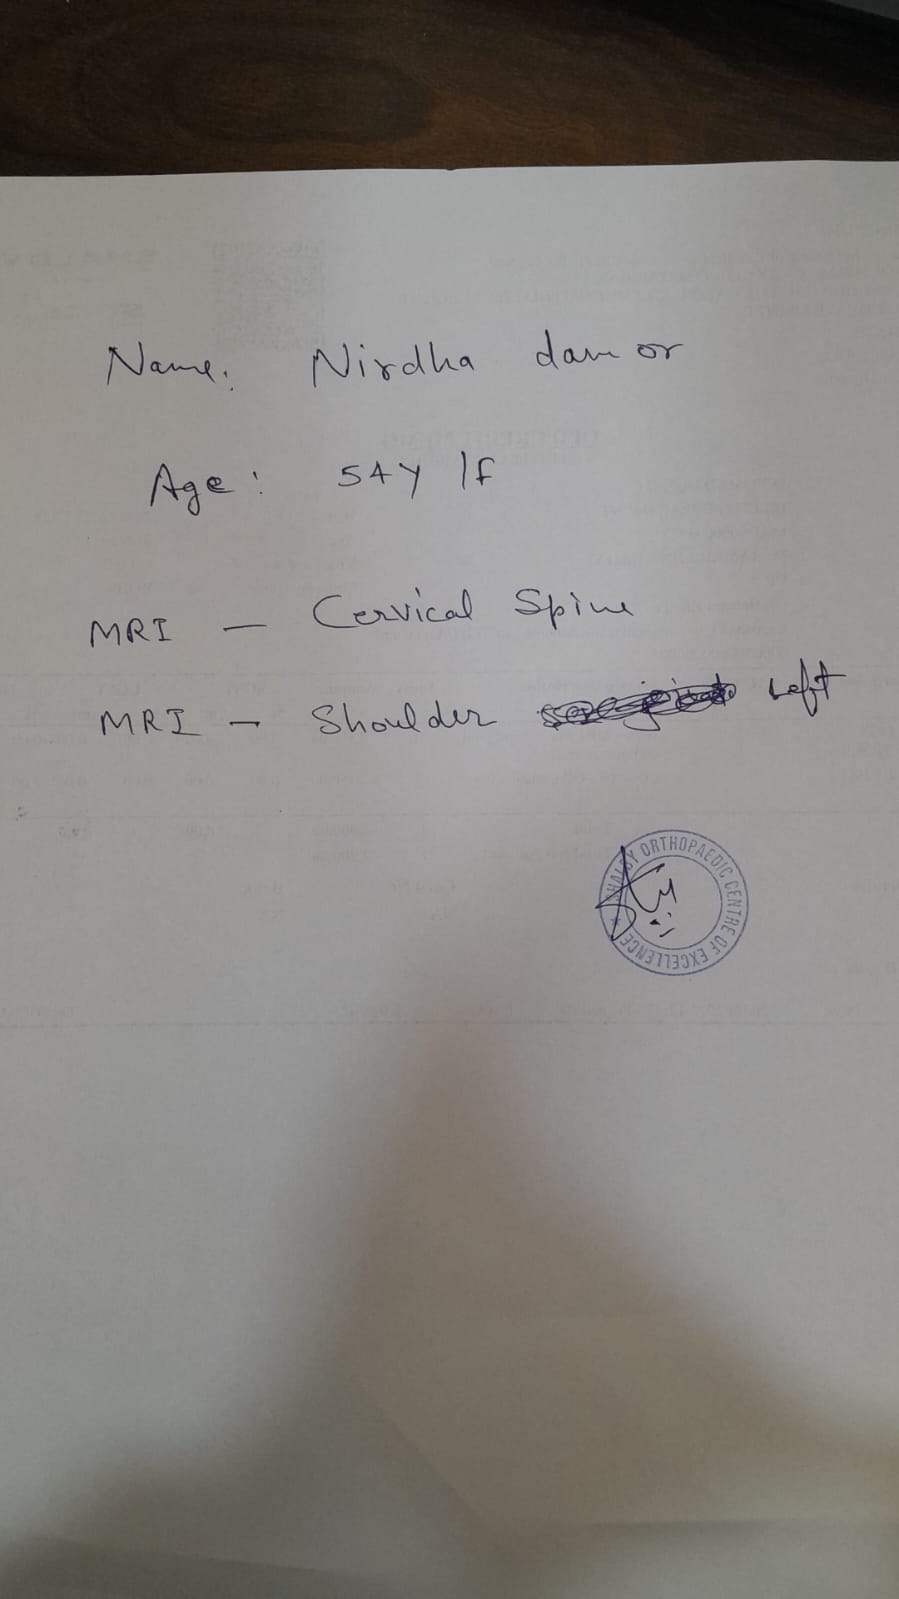 Name: Nirdha damor
Age: 54Y /F
MRI - Cervical Spine
MRI - Shoulder Left
ORTHOPAEDIC CENTRE OF EXCELLENCE